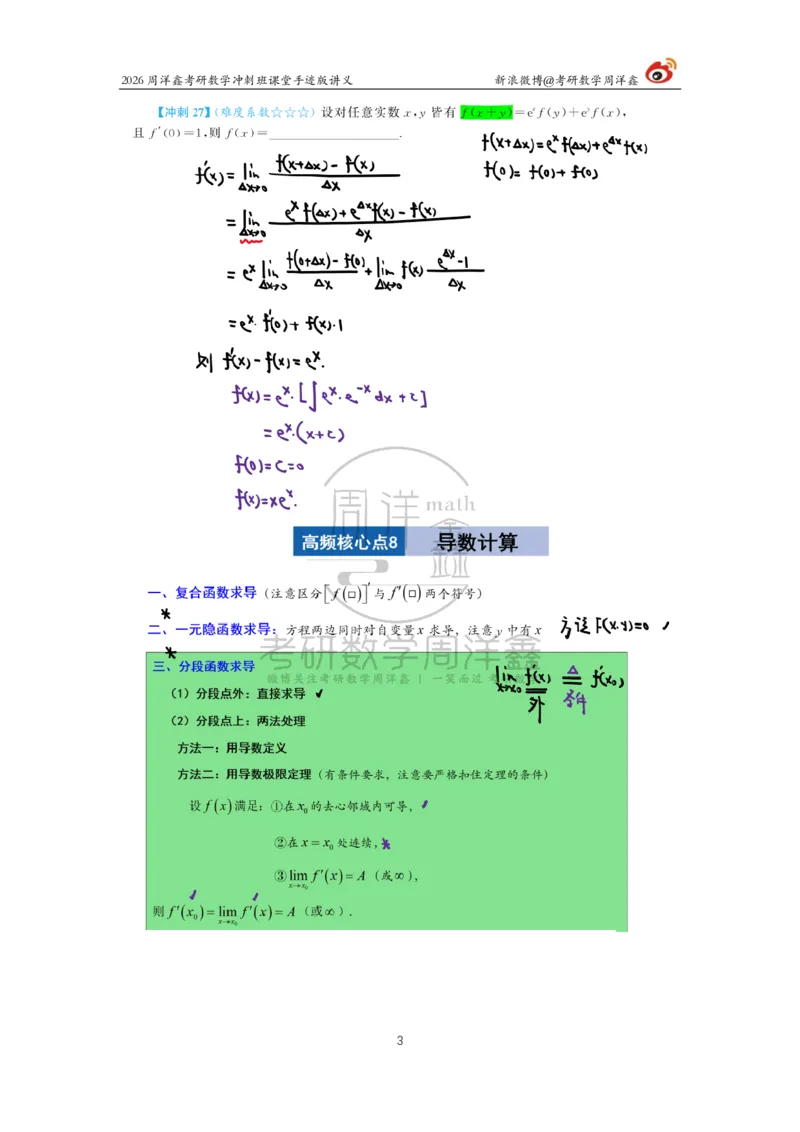 2026周洋鑫考研数学冲刺班课堂手迹版讲义 新浪微博@考研数学周洋鑫
【冲刺27】(难度系数☆☆☆)设对任意实数x,y皆有f(x+y)=eˣf(y)+eʸf(x),
且f′(0)=1,则f(x)=____________.
f(x+Δx)=eˣf(Δx)+e^Δx f(x)
f(0)=f(0)+f(0)
f′(x)=lim_{Δx→0} (f(x+Δx)-f(x))/Δx
=lim_{Δx→0} (eˣf(Δx)+e^Δx f(x)-f(x))/Δx
=eˣ lim_{Δx→0} (f(0+Δx)-f(0))/Δx + lim_{Δx→0} f(x) (e^Δx-1)/Δx
=eˣ·f′(0)+f(x)·1
则 f′(x)-f(x)=eˣ.
f(x)=eˣ·[∫eˣ·e⁻ˣdx+c]
=eˣ·(x+c)
f(0)=c=0
f(x)=xeˣ.
周洋鑫math
高频核心点8 导数计算
一、复合函数求导(注意区分[f(□)]′与f′(□)两个符号)
二、一元隐函数求导:方程两边同时对自变量x求导,注意y中有x 方程F(x,y)=0
考研数学周洋鑫
三、分段函数求导
微博关注考研数学周洋鑫 | 一笑而过
lim_{x→x₀} f′(x) = f′(x₀)
外 条件
(1)分段点外:直接求导
(2)分段点上:两法处理
方法一:用导数定义
方法二:用导数极限定理(有条件要求,注意要严格扣住定理的条件)
设f(x)满足:①在x₀的去心邻域内可导,
②在x=x₀处连续,
③lim_{x→x₀} f′(x)=A(或∞),
则f′(x₀)=lim_{x→x₀} f′(x)=A(或∞).
3